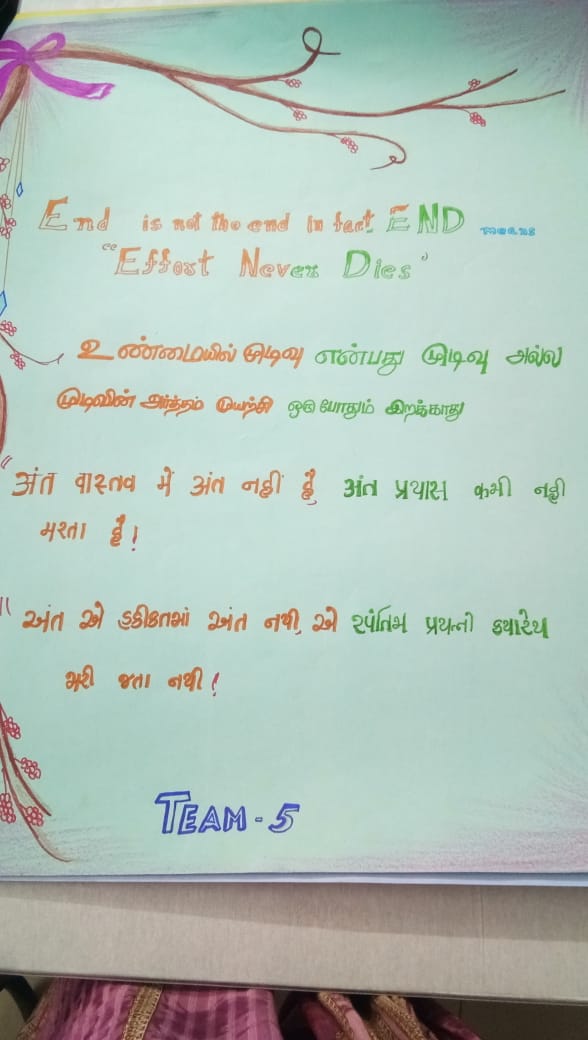 End is not the end in fact END means
"Effort Never Dies"
உண்மையில் முடிவு என்பது முடிவு அல்ல
முடிவின் அர்த்தம் முயற்சி ஒரு போதும் இறக்காது
"अंत वास्तव में अंत नहीं है, अंत प्रयास कभी नही
मरता है!
"અંત એ હકીકતમાં અંત નથી, એ પ્રયત્નો ક્યારેય
મરી જતા નથી!
TEAM - 5